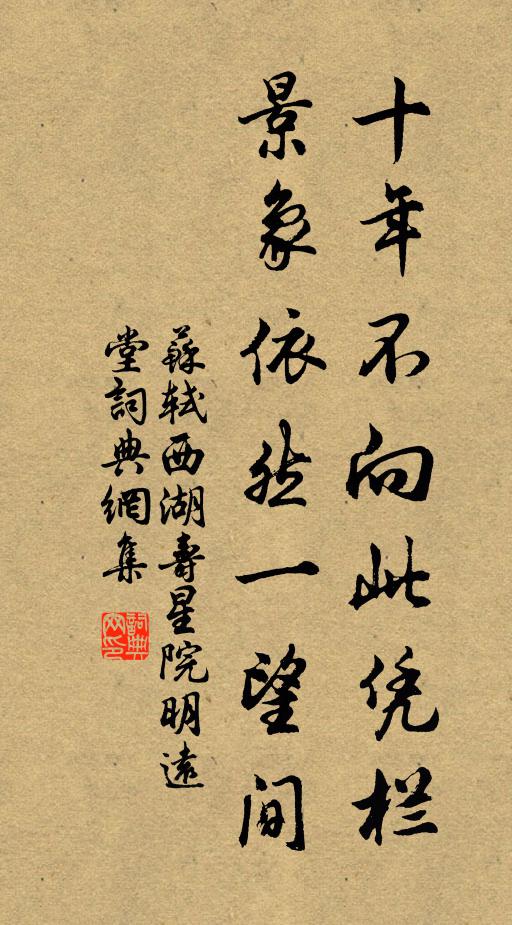 十年不向此凭栏
景象依然一望间
蘇軾西湖壽星院明遠
堂詞典網集
詞典
网印